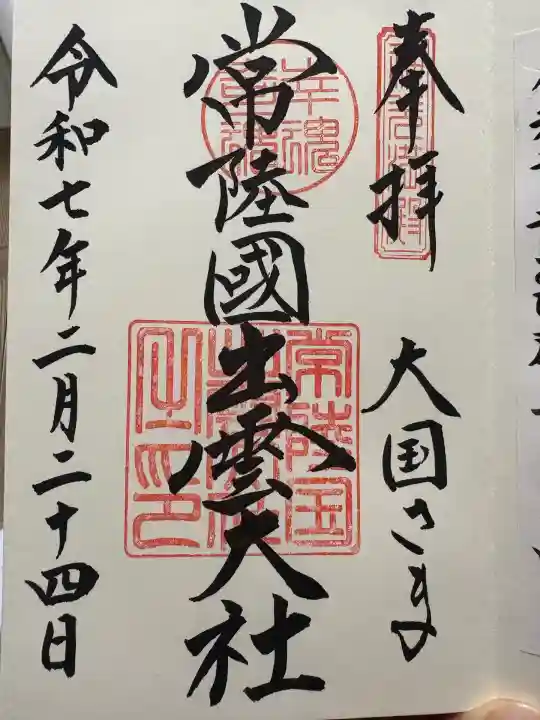 奉拝
大国さま
常陸國出雲大社
幸魂
奇魂
常陸国
出雲大社
之印
令和七年二月二十四日